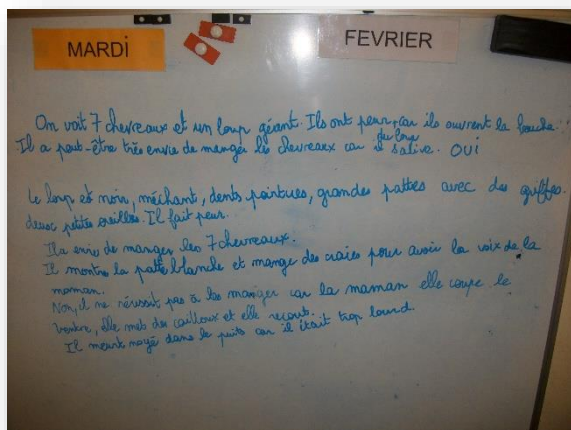 MARDI
FEVRIER
On voit 7 chevreaux et un loup géant. Ils ont peur car ils ouvrent la bouche.
du loup
Il a peut-être très envie de manger les chevreaux car il salive. OUI
Le loup est noir, méchant, dents pointues, grandes pattes avec des griffes.
deux petites oreilles. Il fait peur.
Il a envie de manger les 7 chevreaux.
Il montre la patte blanche et mange des craies pour avoir la voix de la
maman.
Non, il ne réussit pas à les manger car la maman elle coupe le
ventre, elle met des cailloux et elle recout.
Il meurt noyé dans le puits car il était trop lourd.